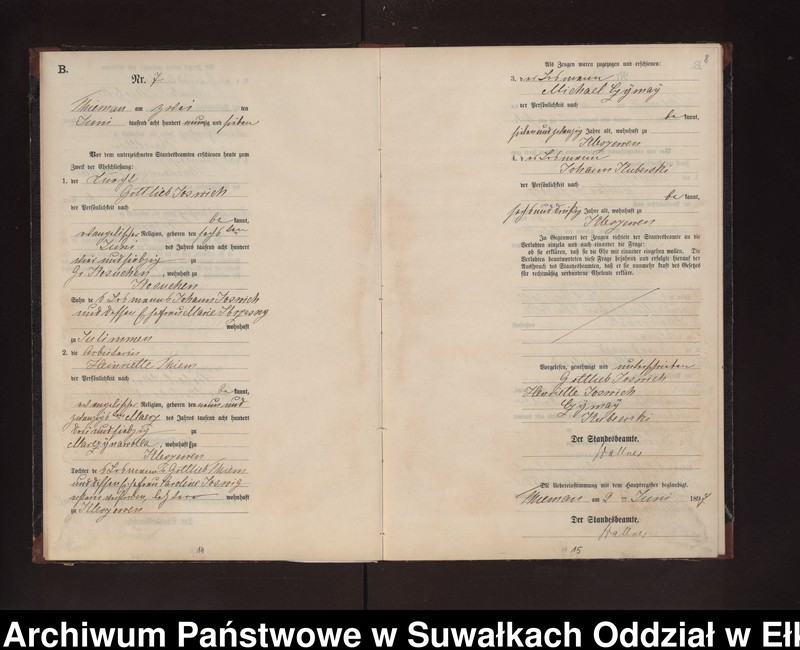 B.
Nr. 7
am zwei ten
Juni tausend acht hundert neunzig und sieben
Vor dem unterzeichneten Standesbeamten erschienen heute zum
Zweck der Eheschließung:
1. der
Gottlieb Joswich
der Persönlichkeit nach
be kannt,
evangelischer Religion, geboren den sechs ten
Juni des Jahres tausend acht hundert
vier und siebzig zu
Gr. Kosuchen, wohnhaft zu
Kosuchen
Sohn des Losmanns Johann Joswich
und dessen Ehefrau Marie
wohnhaft
zu Sulimmen
2. die Arbeiterin
Henriette
der Persönlichkeit nach
be kannt,
evangelischer Religion, geboren den neun und
zwanzigsten März des Jahres tausend acht hundert
drei und siebzig zu
Marczynawolla, wohnhaft zu
Tochter des Losmanns Gottlieb
und dessen Ehefrau Karoline Joswig
wohnhaft
zu
14
8
Als Zeugen waren zugezogen und erschienen:
3. der Losmann
Michael Gÿmaÿ
der Persönlichkeit nach
be kannt,
sieben und zwanzig Jahre alt, wohnhaft zu
4. der Losmann
Johann Kuberski
der Persönlichkeit nach
be kannt,
sechs und dreißig Jahre alt, wohnhaft zu
In Gegenwart der Zeugen richtete der Standesbeamte an die
Verlobten einzeln und nach einander die Frage:
ob sie erklären, daß sie die Ehe mit einander eingehen wollen. Die
Verlobten beantworteten diese Frage bejahend und erfolgte hierauf der
Ausspruch des Standesbeamten, daß er sie nunmehr kraft des Gesetzes
für rechtmäßig verbundene Eheleute erkläre.
Vorgelesen, genehmigt und unterschrieben
Gottlieb Joswich
Henriette Joswich
Gÿmaÿ
Kuberski
Der Standesbeamte.
Die Uebereinstimmung mit dem Hauptregister beglaubigt.
am 2 ten Juni 1897
Der Standesbeamte.
15
Archiwum Państwowe w Suwałkach Oddział w Ełk